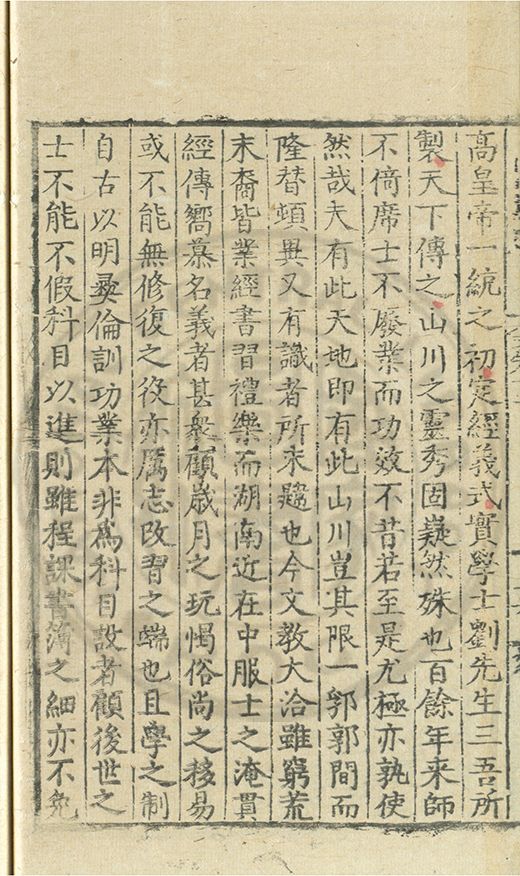 高皇帝一統之初定經義式實學士劉先生三吾所
製天下傳之山川之靈秀固嶷然殊也百餘年來師
不倚席士不廢業而功效不昔若至是尤極亦孰使
然哉夫有此天地即有此山川豈其限一郛郭間而
隆替頓異又有識者所未題也今文教大洽雖窮荒
末裔皆業經書習禮樂而湖南近在中服士之淹貫
經傳嚮慕名義者甚衆顧歲月之玩愒俗尚之移易
或不能無修復之役亦厲志改習之端也且學之制
自古以明彜倫訓功業本非爲科目設者顧後世之
士不能不假科目以進則雖程課書簿之細亦不免